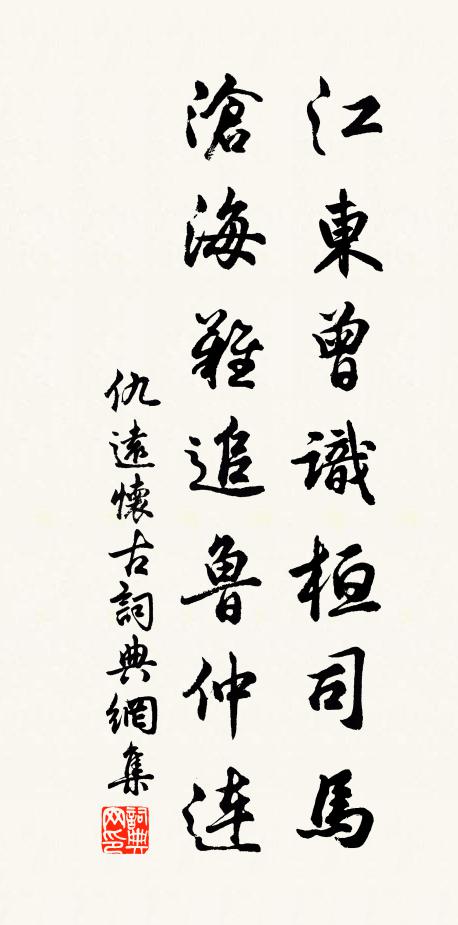 江東曾識桓司馬
滄海難追魯仲連
仇遠懷古詞典網集
詞典網印